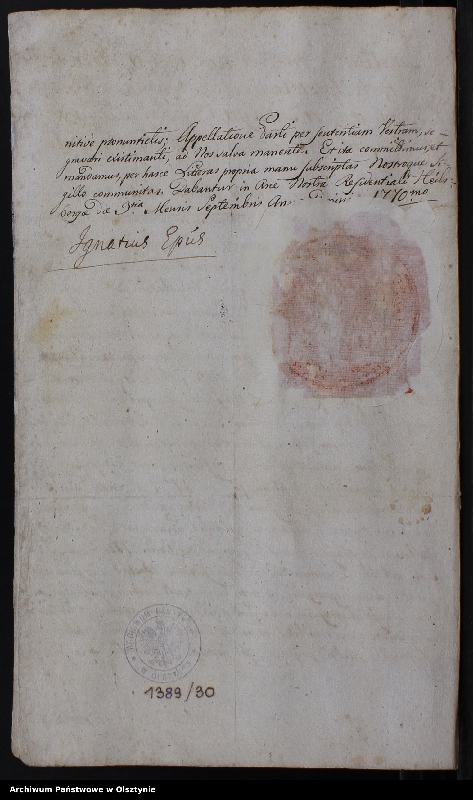 nitive pronuncietis; Appellatione Parti per sententiam Vestram, se
gravari existimanti, ad Nos salva manente. Et ita committimus, et
mandamus, per hasce Literas propria manu subscriptas Nostroque Si-
gillo communitas. Dabantur in Arce Nostra Residentiali Heils-
berga die 3tia Mensis Septembris 1770mo
Ignatius Epũs
1389/30
Archiwum Państwowe w Olsztynie